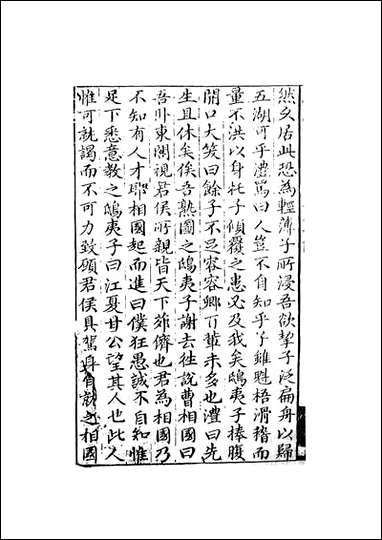 然久居此恐為輕薄子所浸吾欲挈子泛扁舟以歸
五湖可乎澧罵曰人豈不自知乎子雖魁梧滑稽而
量不洪以身托子傾覆之患必及我矣鴟夷子捧腹
開口大笑曰餘子不足容容卿百輩未多也澧曰先
生且休矣俟吾熟圖之鴟夷子謝去往說曹相國曰
吾州東閣視君侯所親皆天下節儕也君為相國乃
不知有人才耶相國起而進曰僕狂愚誠不自知惟
足下悉意教之鴟夷子曰江夏甘公望其人也此人
惟可就謁而不可力致願君侯具駕身自就之相國